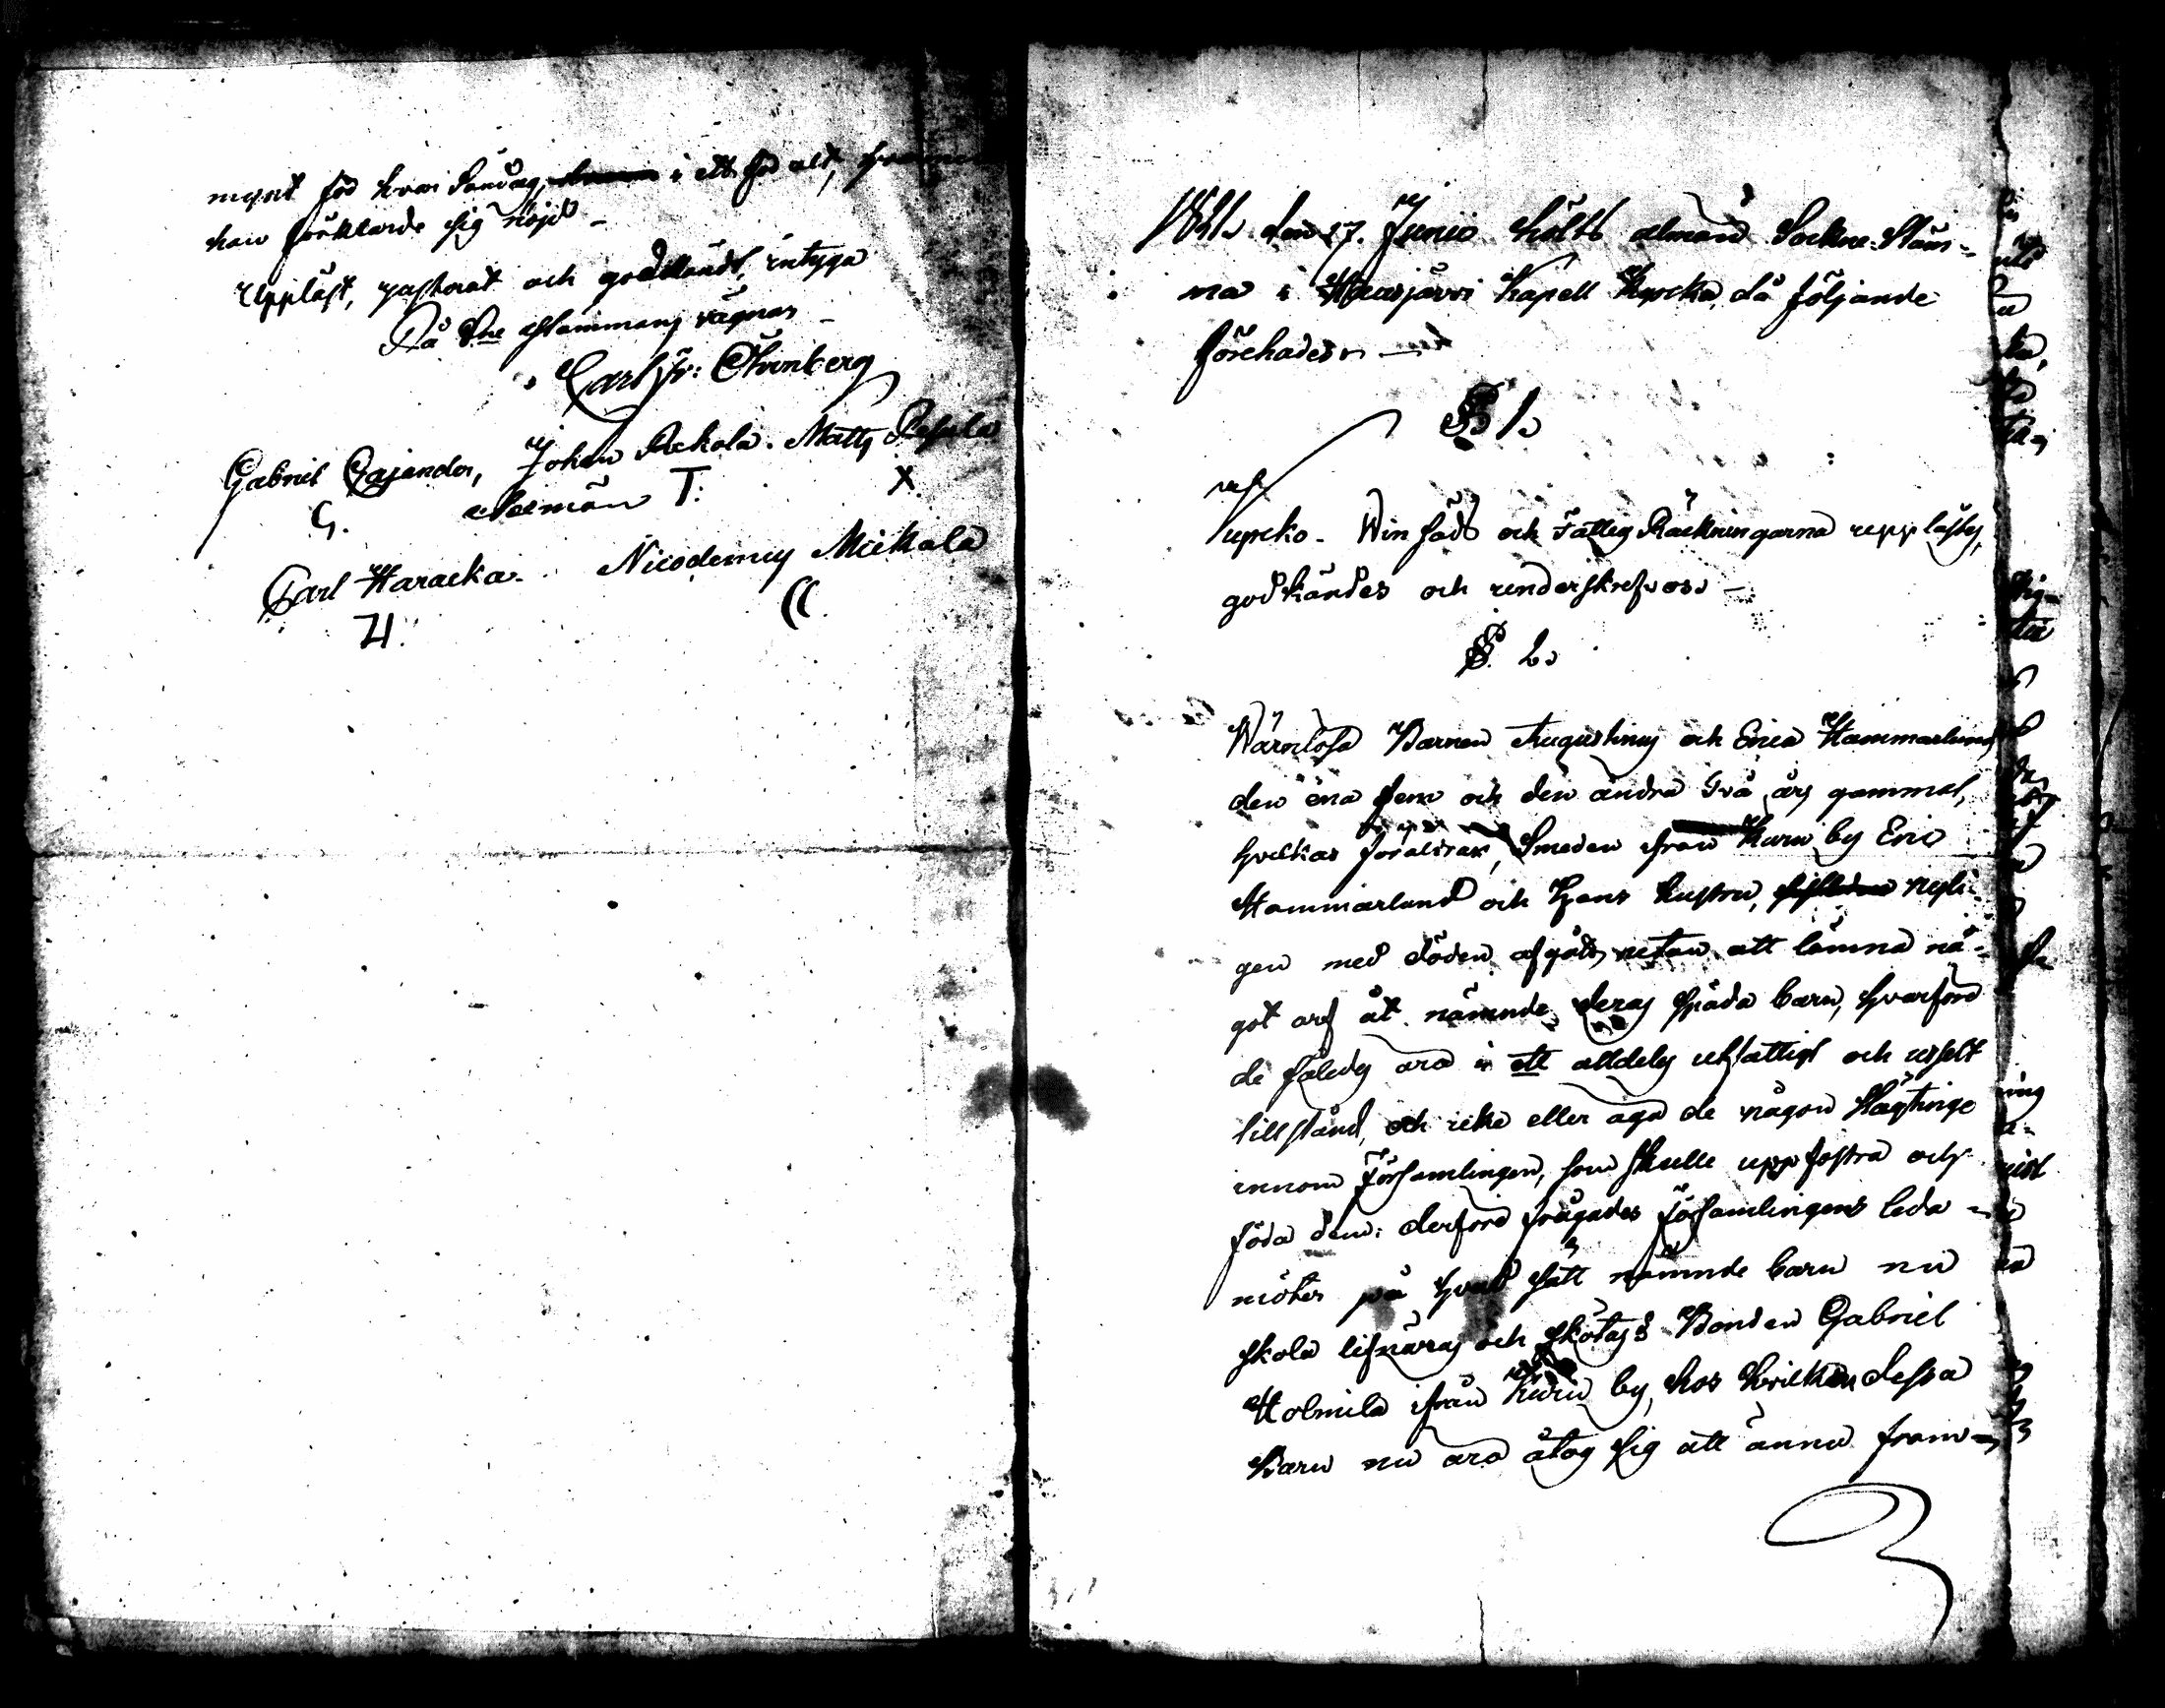 mynt för hvar Söndag, i ett för alt,
han förklarde sig nöjd –
Uppläst, justerat och godkändt, intyga
På Sne Stämmans vägnar –
Carl Fr: Öhrnberg
Gabriel Cajander, Johan Rekola. Matts
G. Nämän T. X
Carl Haracka. Nicodemus Miekala
H. ((
den 17. Junii hölts almän Sockne Stäm-
ma i Kapell Kyrcka, då följande
förehades. –
§ 1.
Kyrko- Winsäds och Fattig Räckningarna uppläste,
godkändes och underskrefvos. –
§. 2.
Wärnlösa Barnen Augustinus och Erica Hammarlund
den ena fem och den andra två års gammal,
hvilkas föräldrar, Smeden från Kuru by Eric
Hammarlund och Hans Hustru, nyli-
gen med döden afgått, utan att lämna nå-
got arf åt nämnde deras späda barn, hvarföre
de således äro i ett alldeles utfattigt och uselt
tillstånd, och icke eller äga de någon Slägtinge
innom Församlingen, som skulle uppfostra och
föda dem: derföre frågades Församlingens leda-
möter på hvad sätt nämnde barn nu
skola lifnäras och skötas? Bonden Gabriel
Holmila ifrån Kuru by, hos hvilken dessa
Barn nu äro åtog sig att ännu fram-